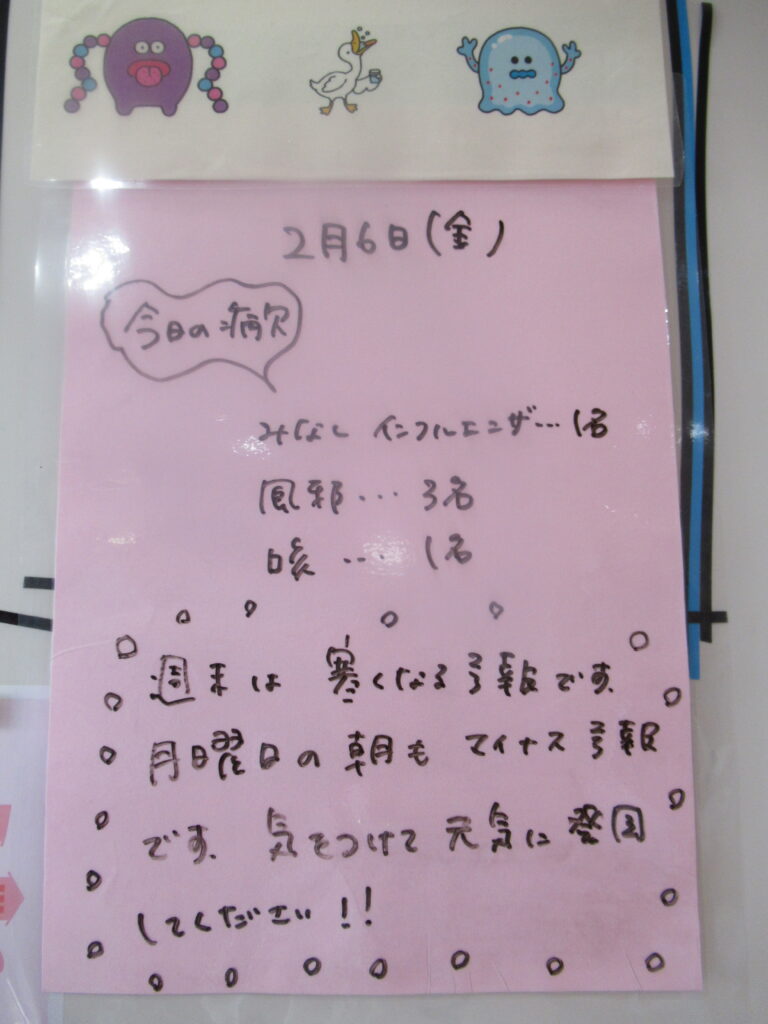 2月6日(金)
今日の病欠
みなしインフルエンザ…1名
風邪…3名
咳…1名
週末は寒くなる予報です。
月曜日の朝もマイナス予報
です。気をつけて元気に登園
してください!!